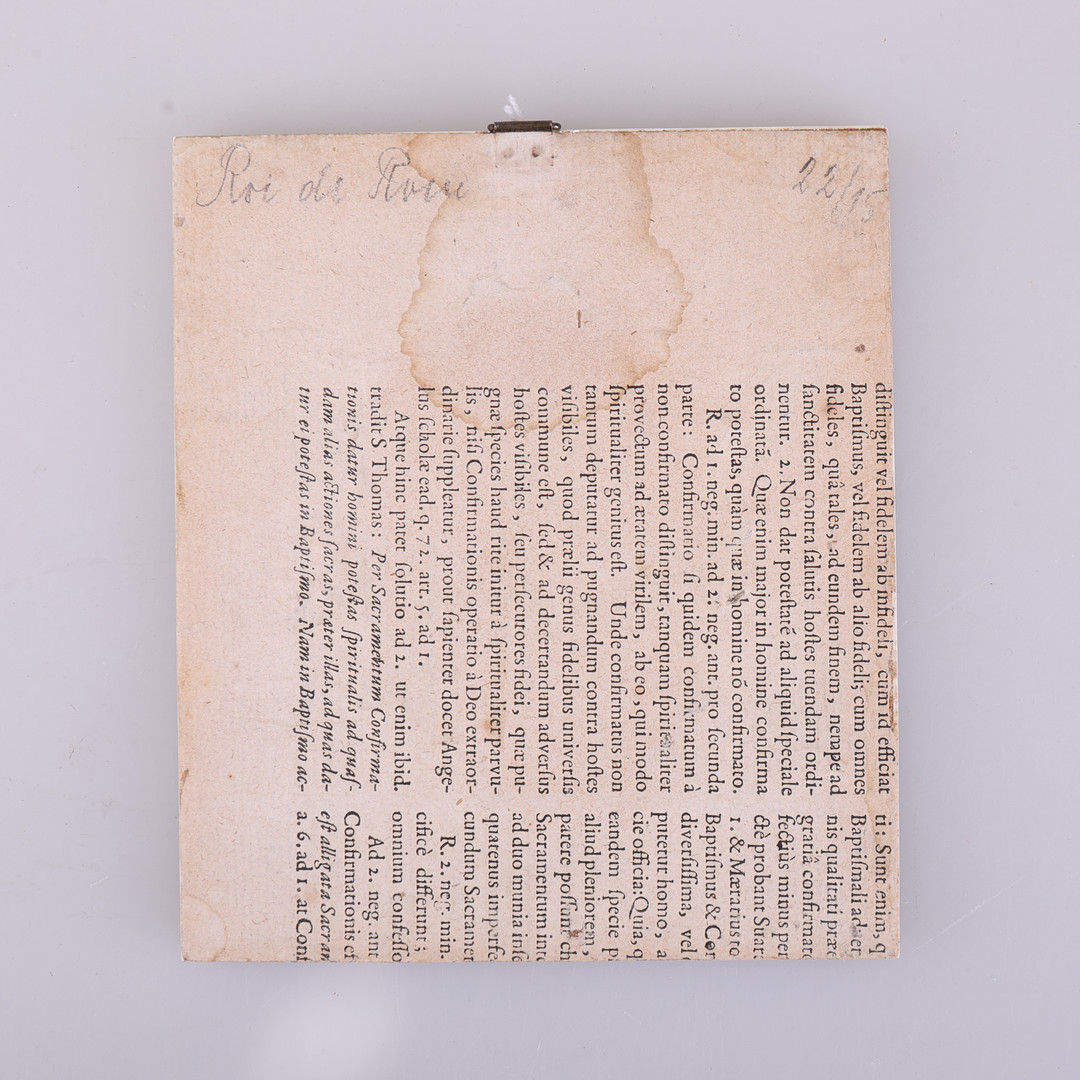 Roi de Rome
22/15
distinguit vel fidelem ab infideli, cum id efficiat
Baptiſmus, vel fidelem ab alio fideli; cum omnes
fideles, quâ tales, ad eundem finem, nempe ad
ſanctitatem contra ſalutis hoſtes tuendam ordi-
nentur. 2. Non dat poteſtatẽ ad aliquid ſpeciale
ordinatã. Quæ enim major in homine confirma
to poteſtas, quàm quæ in homine nõ confirmato.
R. ad 1. neg. min. ad 2. neg. ant. pro ſecunda
parte: Confirmatio ſi quidem confirmatum à
non confirmato diſtinguit, tanquam ſpiritualiter
provectum ad ætatem virilem, ab eo, qui modo
ſpiritualiter genitus eſt. Unde confirmatus non
tantum deputatur ad pugnandum contra hoſtes
viſibiles, quod prælii genus fidelibus univerſis
commune eſt, ſed & ad decertandum adverſus
hoſtes viſibiles, ſeu perſecutores fidei, quæ pu-
gnæ ſpecies haud rite initur à ſpiritualiter parvu-
lis, niſi Confirmationis operatio à Deo extraor-
dinarie ſuppleatur, prout ſapienter docet Ange-
lus ſcholæ ead. q. 72. art. 5. ad 1.
Atque hinc patet ſolutio ad 2. ut enim ibid.
tradit S Thomas: Per Sacramentum Confirma-
tionis datur homini poteſtas ſpiritualis ad quaſ-
dam alias actiones ſacras, præter illas, ad quas da-
tur ei poteſtas in Baptiſmo. Nam in Baptiſmo ac-
ti: Sunt enim, q
Baptiſmali adver
nis qualitati præe
gratiâ confirmatc
fectiùs minus per
ctè probant Suar.
1. & Mæratius to
Baptiſmus & Cor
diverſiſſima, vel e
putetur homo, a
cie officia: Quia, q
eandem ſpecie p
aliud pleniorem,
parere poſſunt ch
Sacramentum inte
ad duo munia inſe
quatenus imperfe
cundum Sacramer
R. 2. neg. min.
cificè differunt;
omnium confeſſo
Ad 2. neg. ant
Confirmationis et
eſt alligata Sacram
a. 6. ad 1. at Conf